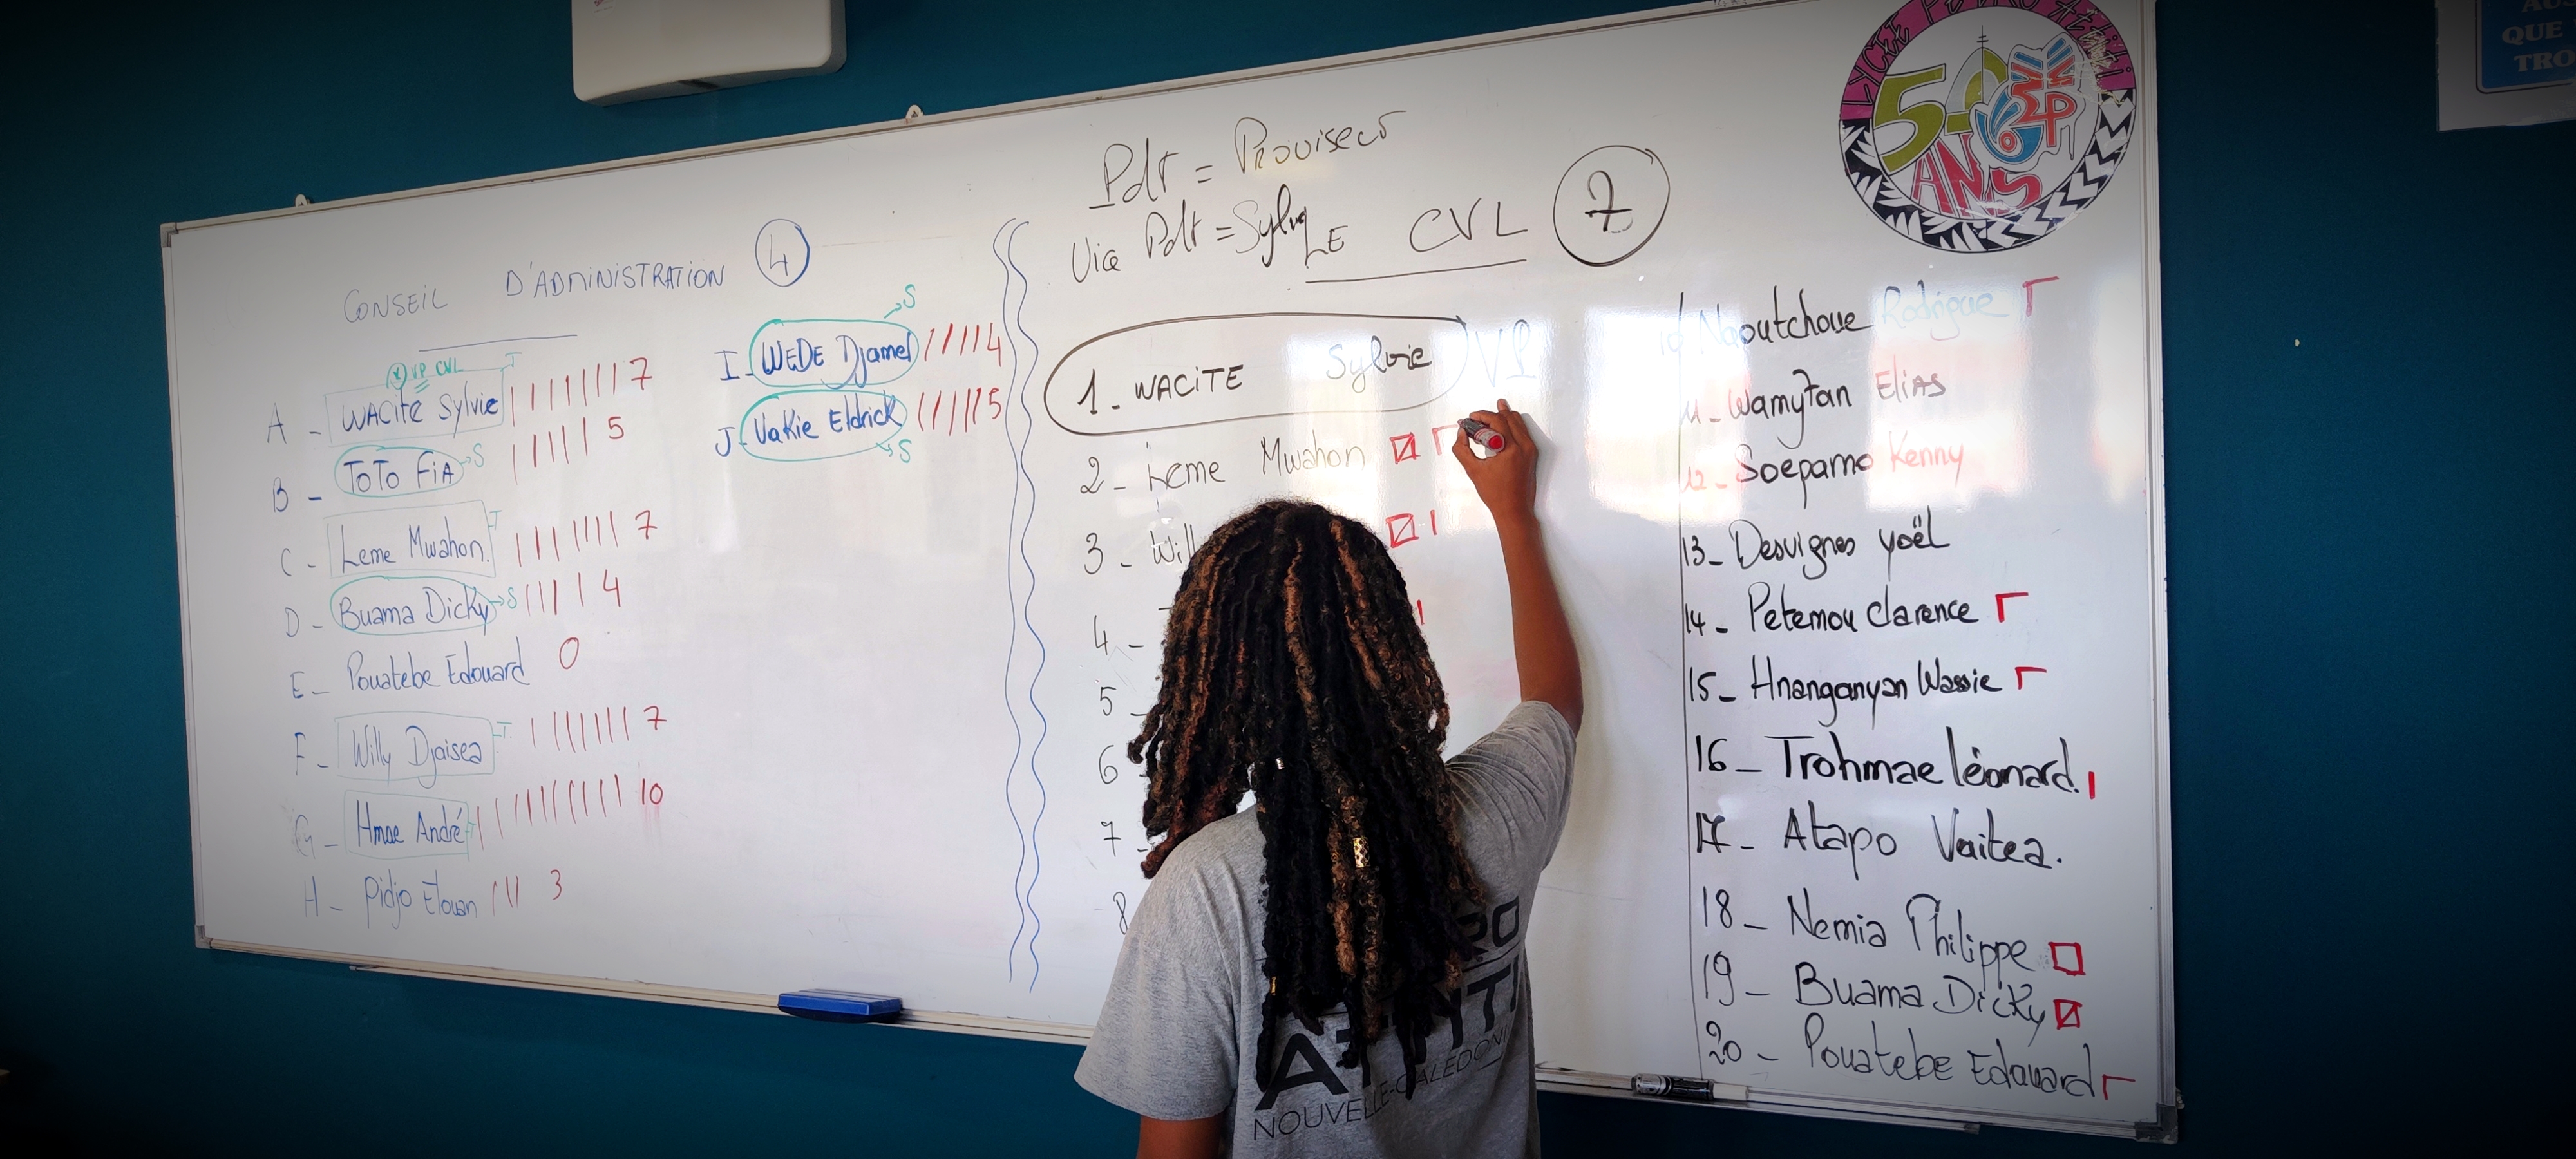 CONSEIL D'ADMINISTRATION 4
VP CVL
A - WACITE Sylvie T 7
B - TOTO FiA S 5
C - Leme Mwahon. T 7
D - Buama Dicky S 4
E - Pouatebe Edouard 0
F - Willy Djaisea T 7
G - Hmae André T 10
H - Pidjo Elouan 3
I - WEDE Djamel S 4
J - Vakie Eldrick S 5
Pdt = Proviseur
Vice Pdt = Sylvie
LE CVL 7
1 - WACITE Sylvie VP
2 - Leme Mwahon
3 - Will
4 -
5 -
6
7 -
8
10 Naoutchoue Rodrigue
11 - Wamytan Elias
12 - Soeparno Kenny
13 - Desvignes yoël
14 - Petemou Clarence
15 - Hnanganyan Wassie
16 - Trohmae léonard.
17 - Atapo Vaitea.
18 - Nemia Philippe
19 - Buama Dicky
20 - Pouatebe Edouard
LYCÉE PETRO ATTITI
50 ANS
LP
AUS
QUE
TRO
ATTITI
NOUVELLE-CALEDONI